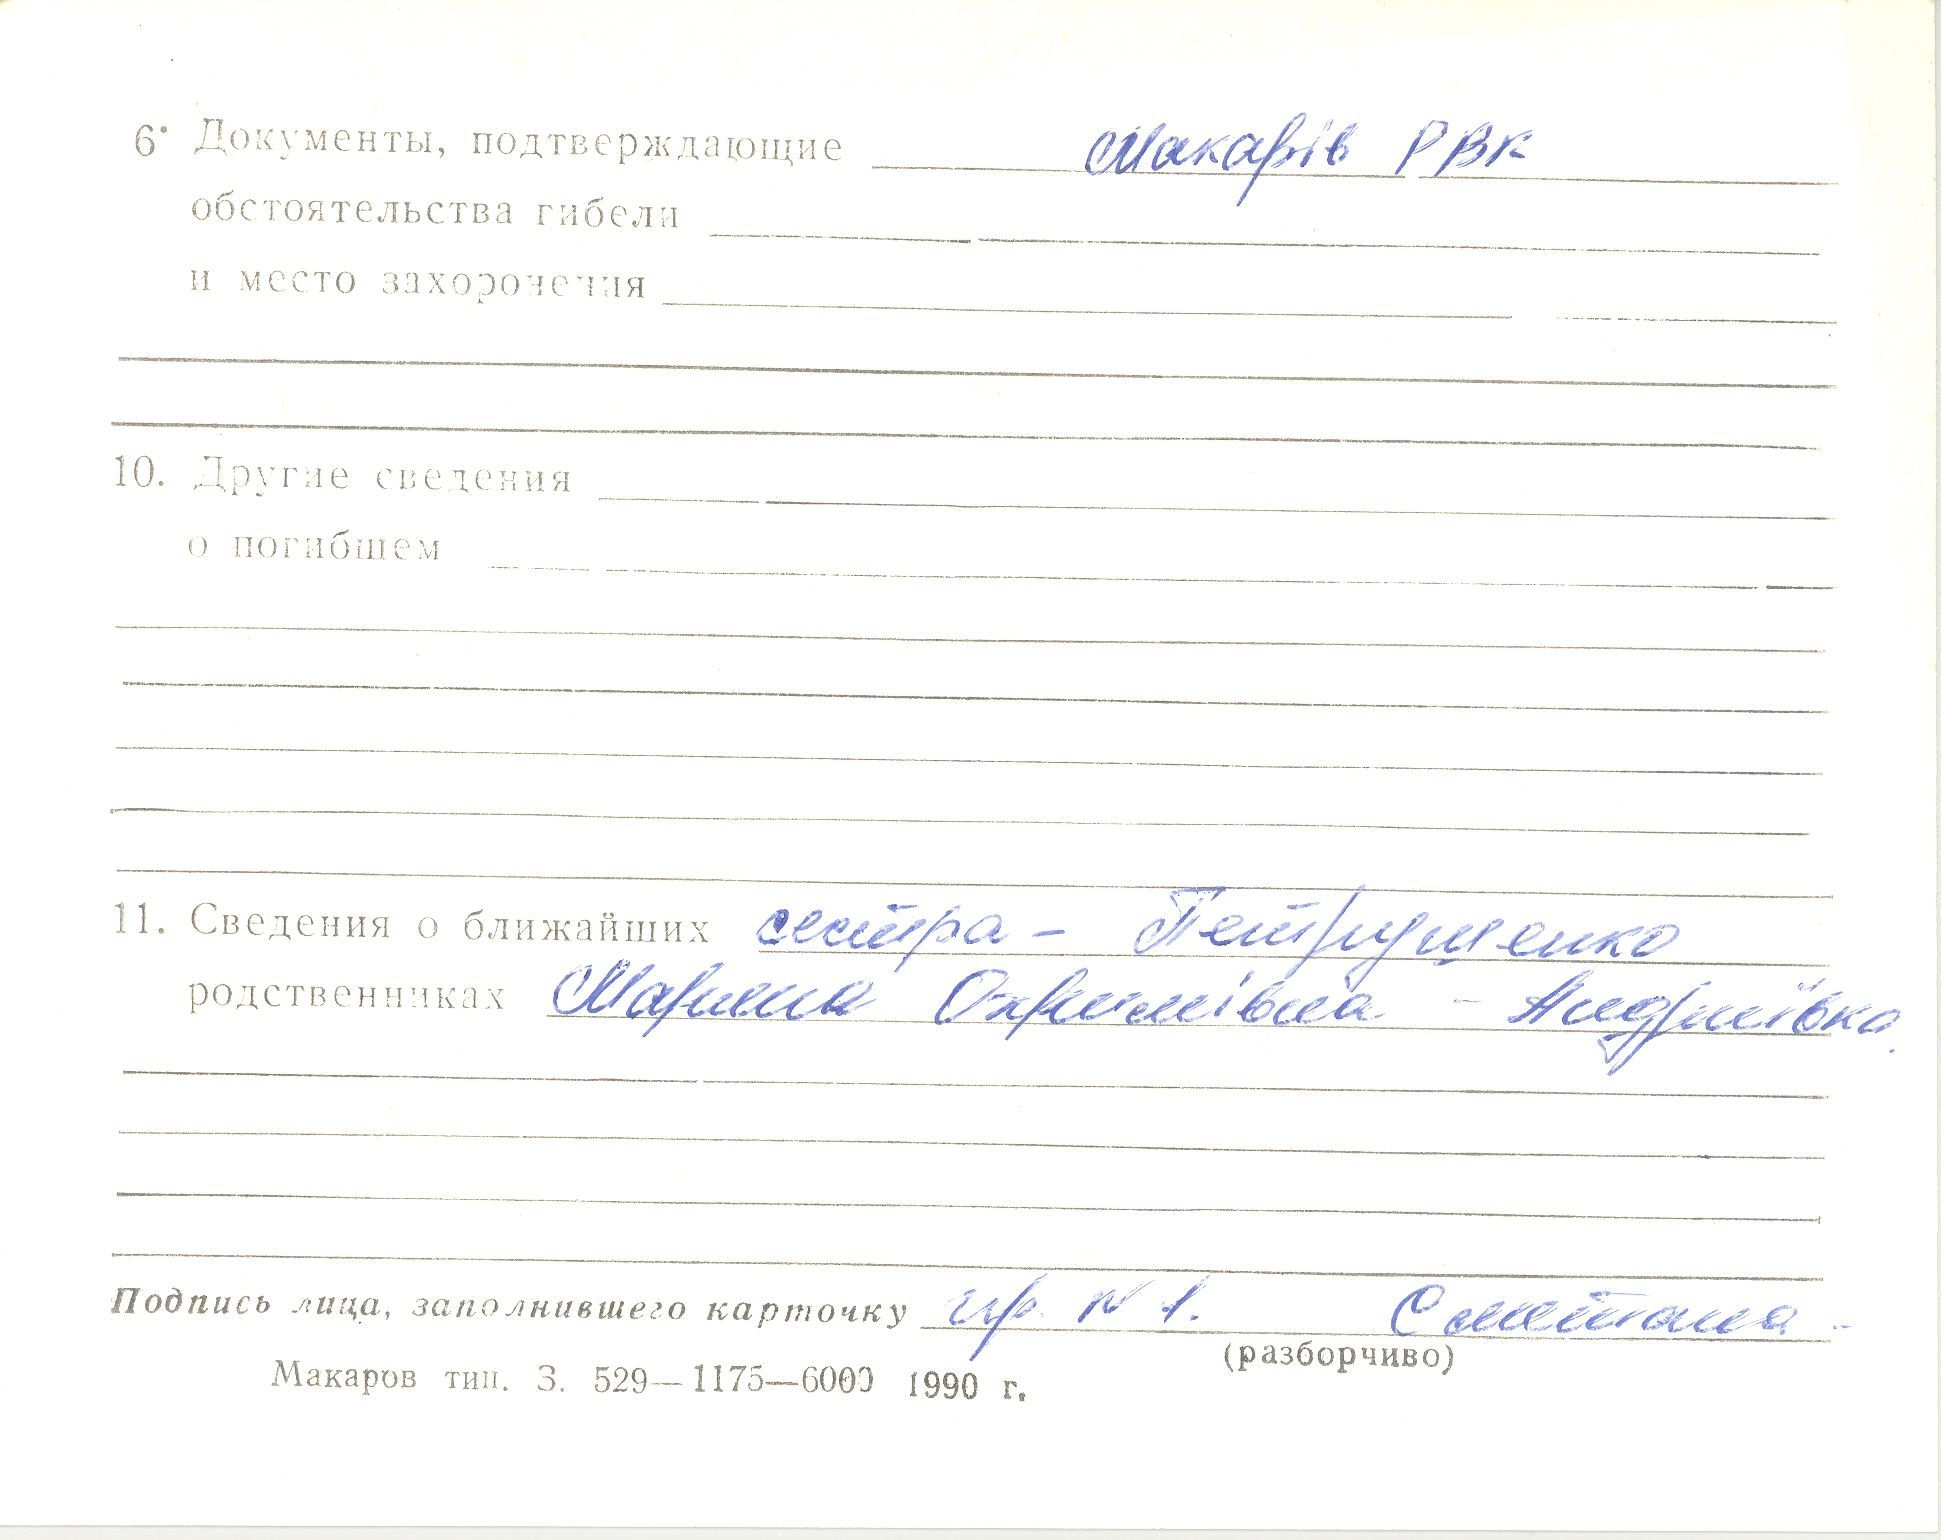 6. Документы, подтверждающие Макарів РВК
обстоятельства гибели
и место захоронения
10. Другие сведения
о погибшем
11. Сведения о ближайших сестра - Петрущенко
родственниках Марина Охрімівна - Андріївка.
Подпись лица, заполнившего карточку гр. N 1. Сметана
(разборчиво)
Макаров тип. З. 529—1175—6000 1990 г.